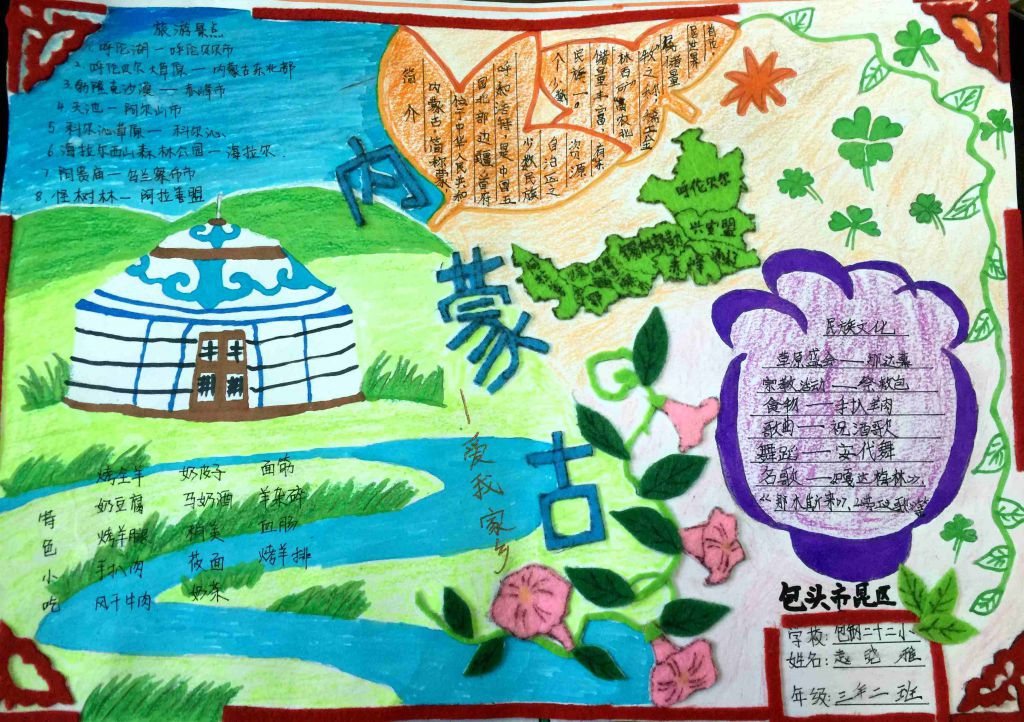 旅游景点
1. 呼伦湖—呼伦贝尔市
2. 呼伦贝尔大草原—内蒙古东北部
3. 勃隆克沙漠—赤峰市
4. 天池—阿尔山市
5. 科尔沁草原—科尔沁
6. 海拉尔西山森林公园—海拉尔
7. 阿贵庙—乌兰察布市
8. 怪树林—阿拉善盟
简介
内蒙古,简称蒙
位于中华人民共和
国北部边疆,首府
呼和浩特,是中国五
个少数民族
自治区之
一。
资源
储量丰富,有东
林西矿,南农北
牧之称,稀土金
属储量
居世界
首位
内蒙古
—爱我家乡
呼伦贝尔
兴安盟
民族文化
草原盛会——那达慕
宗教活动——祭敖包
食物——手扒羊肉
歌曲——祝酒歌
舞蹈——安代舞
名歌——《嘎达梅林》、
特色小吃
烤全羊 奶皮子 面筋
奶豆腐 马奶酒 羊杂碎
烤羊腿 稍美 血肠
手扒肉 莜面 烤羊排
风干牛肉 奶茶
包头市昆区
学校:包钢二十二小
姓名:赵晓雅
年级:三年二班